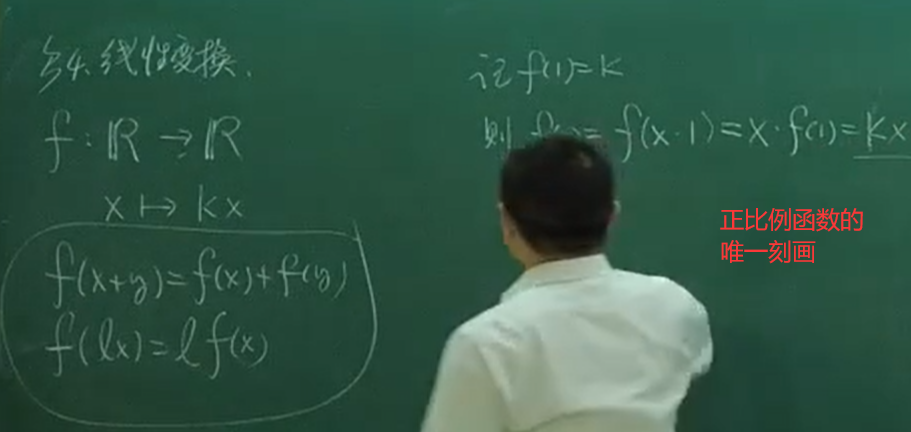 §4. 线性变换.
f: ℝ → ℝ
x ↦ kx
f(x+y)=f(x)+f(y)
f(lx)=lf(x)
记 f(1)=K
则 = f(x·1)=x·f(1)=kx
正比例函数的
唯一刻画